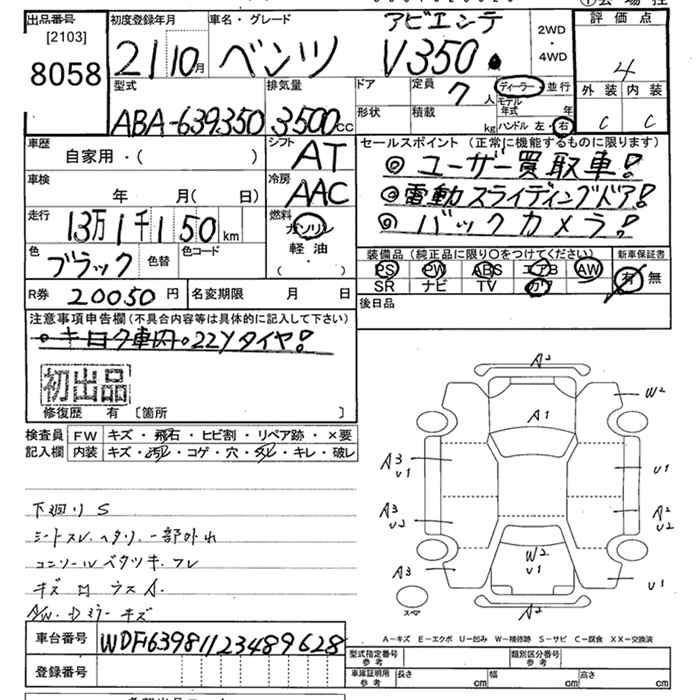 出品番号
[2103]
8058
初度登録年月
21 10月
車名・グレード
ベンツ
アビエンテ
V350
2WD
・
4WD
評価点
4
外装 内装
C C
型式
ABA-639350
排気量
3500cc
ドア
形状
定員
7人
積載
kg
ディーラー・並行
モデル年式 年
ハンドル 左・右
車歴
自家用・( )
シフト
AT
車検
年 月( 日)
冷房
AAC
走行
13万1千150km
燃料
ガソリン
軽油
( ・ )
色
ブラック
色替
色コード
R券 20050円
名変期限 月 日
セールスポイント (正常に機能するものに限ります)
◎ ユーザー買取車!
◎ 電動スライディングドア!
◎ バックカメラ!
装備品 (純正品に限り○をつけてください)
新車保証書
PS PW ABS エアB AW
SR ナビ TV カワ
有・無
後日品
注意事項申告欄 (不具合内容等は具体的に記入して下さい)
22Yタイヤ!
初出品
修復歴 有 〔箇所 〕
検査員
記入欄
FW キズ・飛石・ヒビ割・リペア跡・×要
内装 キズ・汚れ・コゲ・穴・スレ・キレ・破レ
下廻り S
シートスレ、ヘタリ、一部外れ
コンソールベタツキ、スレ
A/W、Dミラー キズ
A2
W2
A1
A3
U1
U1
A3
U2
A2
U2
W2
U1
A3
U1
A2
スペア
A-キズ E-エクボ U-凹み W-補修跡 S-サビ C-腐食 XX-交換済
車台番号 WDF63981123489628
登録番号
型式指定番号
参考
類別区分番号
参考
車庫証明用
参考
長さ cm
幅 cm
高さ cm